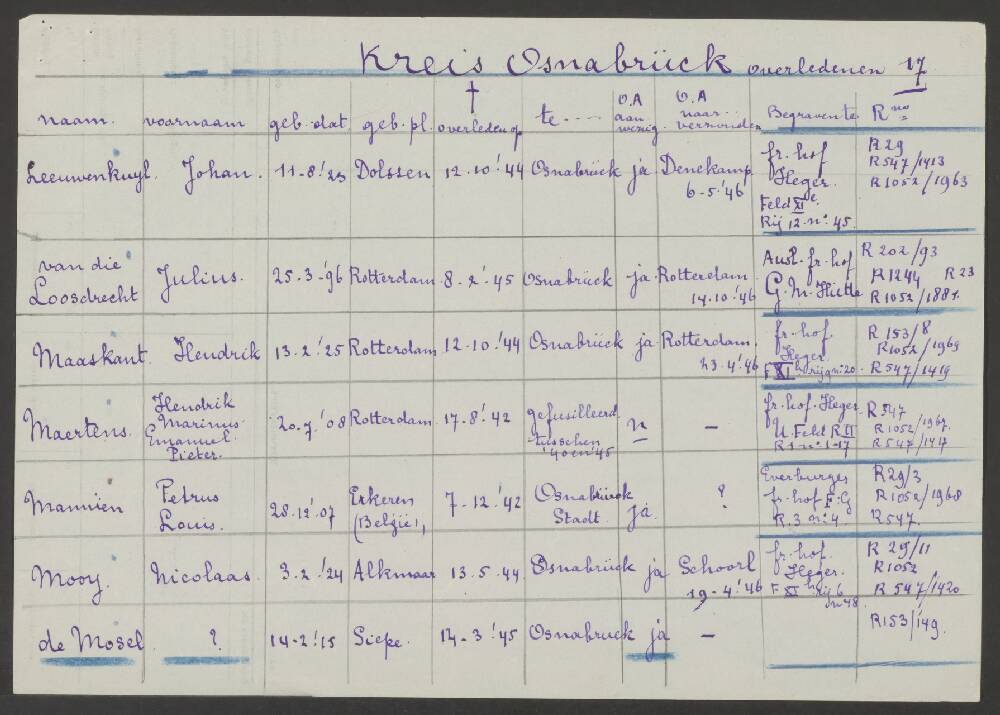 Kreis Osnabrück overledenen 17
naam. voornaam geb-dat geb.pl. † overleden op te ---- O.A aan wezig. O.A naar vernouden Begraven te R no
Leeuwenkuyl. Johan. 11-8-'23 Dolssen 12-10-'44 Osnabrück ja Denekamp 6-5-'46 fr. hof Heger. Feld XI e Rij 12 no. 45. R29 R547/1413 R1052/1963
van die Loosdrecht Julius. 25-3-'96 Rotterdam 8-2-'45 Osnabrück ja Rotterdam 14-10-'46 Ausl. fr. hof G.M. Hütte R 202/93 R1244 R23 R1052/1881.
Maaskant. Hendrik 13-2-'25 Rotterdam 12-10-'44 Osnabrück ja Rotterdam 23-4-'46 fr. hof. Heger. F XI h rij 9 no. 20. R 153/8 R1052/1969 R547/1419
Maertens. Hendrik Marinus Emanuel. Pieter. 20-7-'08 Rotterdam 17-8-'42 gefusilleerd tusschen '40 en '45 n — fr. hof. Heger U. Feld R II R1 no 1-17 R547 R1052/1967. R547/1417
Mannien Petrus Louis. 28-12-'07 Erkeren (België), 7-12-'42 Osnabrück Stadt. ja ? Everburger fr. hof F. G R.3 no 4. R29/3 R1052/1968 R547.
Mooy. Nicolaas. 3-2-'24 Alkmaar 13-5-44 Osnabrück ja Schoorl 19-4-'46 fr. hof. Heger. F XI h rij 6 no 48. R 29/11 R1052 R 547/1420
de Mosel ? 14-2-'15 Siepe. 14-3-'45 Osnabruck ja — R153/149.